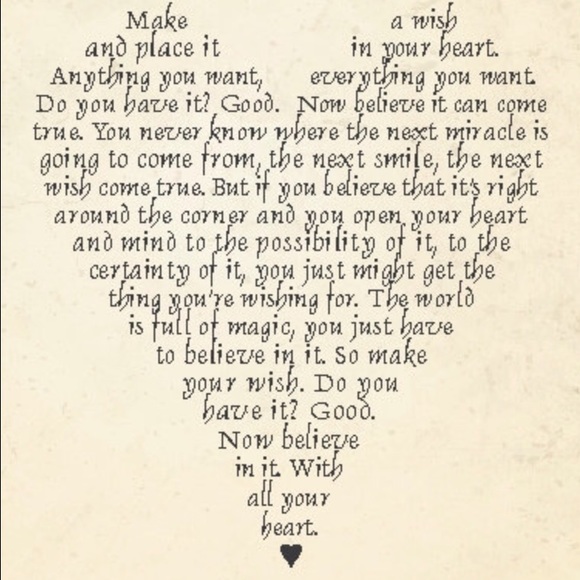 Make a wish
and place it in your heart.
Anything you want, everything you want.
Do you have it? Good. Now believe it can come
true. You never know where the next miracle is
going to come from, the next smile, the next
wish come true. But if you believe that it's right
around the corner and you open your heart
and mind to the possibility of it, to the
certainty of it, you just might get the
thing you're wishing for. The world
is full of magic, you just have
to believe in it. So make
your wish. Do you
have it? Good.
Now believe
in it. With
all your
heart.
♥